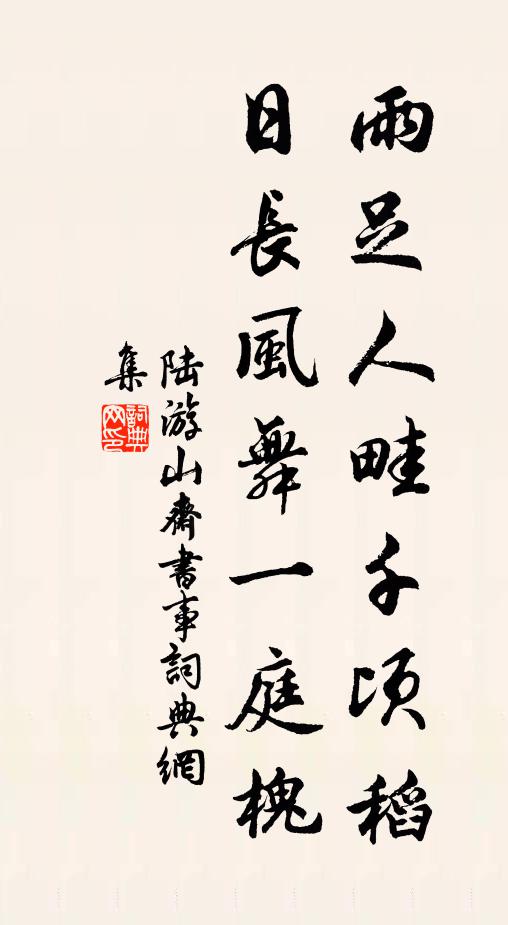 雨足人畦千頃稻
日長風舞一庭槐
陆游山齋書事詞典網
集
詞典
网印